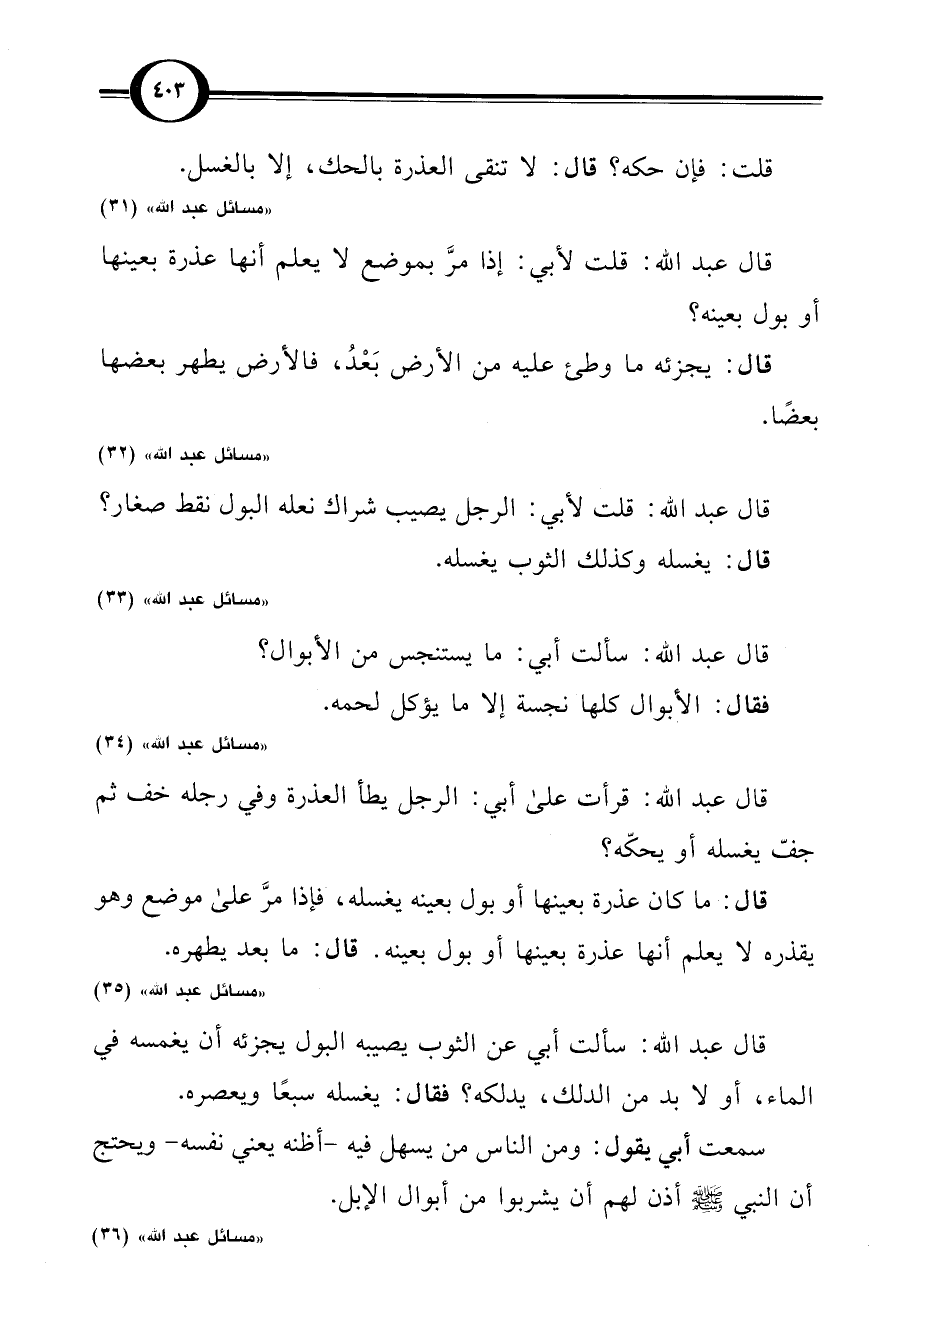 ٤٠٣
قلت: فإن حكه؟ قال: لا تنقى العذرة بالحك، إلا بالغسل.
«مسائل عبد الله» (٣١)
قال عبد الله: قلت لأبي: إذا مرَّ بموضع لا يعلم أنها عذرة بعينها
أو بول بعينه؟
قال: يجزئه ما وطئ عليه من الأرض بَعْدُ، فالأرض يطهر بعضها
بعضًا.
«مسائل عبد الله» (٣٢)
قال عبد الله: قلت لأبي: الرجل يصيب شراك نعله البول نقط صغار؟
قال: يغسله وكذلك الثوب يغسله.
«مسائل عبد الله» (٣٣)
قال عبد الله: سألت أبي: ما يستنجس من الأبوال؟
فقال: الأبوال كلها نجسة إلا ما يؤكل لحمه.
«مسائل عبد الله» (٣٤)
قال عبد الله: قرأت علىٰ أبي: الرجل يطأ العذرة وفي رجله خف ثم
جفّ يغسله أو يحكّه؟
قال: ما كان عذرة بعينها أو بول بعينه يغسله، فإذا مرَّ علىٰ موضع وهو
يقذره لا يعلم أنها عذرة بعينها أو بول بعينه. قال: ما بعد يطهره.
«مسائل عبد الله» (٣٥)
قال عبد الله: سألت أبي عن الثوب يصيبه البول يجزئه أن يغمسه في
الماء، أو لا بد من الدلك، يدلكه؟ فقال: يغسله سبعًا ويعصره.
سمعت أبي يقول: ومن الناس من يسهل فيه -أظنه يعني نفسه- ويحتج
أن النبي ﷺ أذن لهم أن يشربوا من أبوال الإبل.
«مسائل عبد الله» (٣٦)